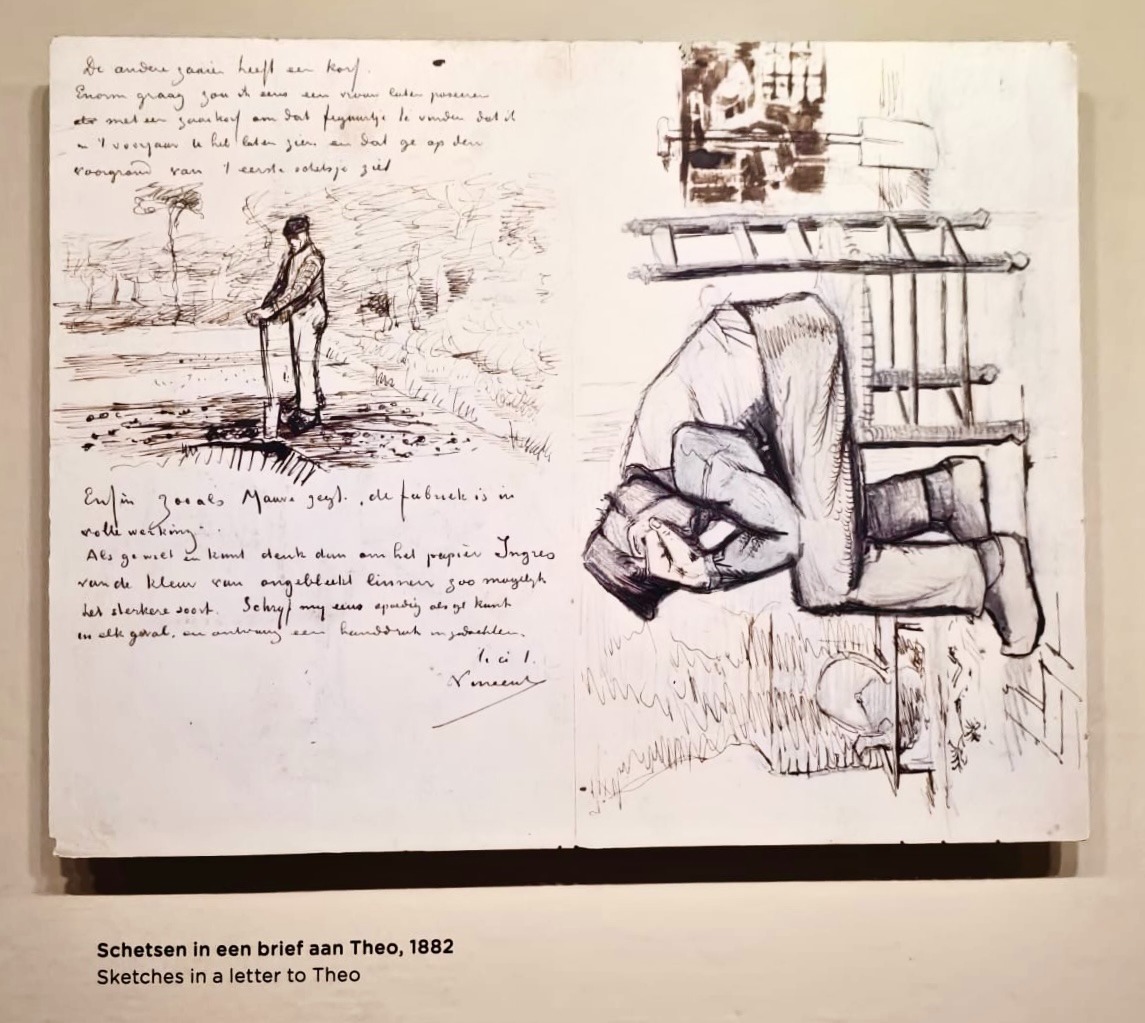 De andere zaaier heeft een korf.
Enorm graag zou ik eens een vrouw laten poseeren
met een zaaikorf om dat figuurtje te vinden dat ik
in 't voorjaar U heb laten zien en dat ge op den
voorgrond van 't eerste schetsje ziet
Enfin zooals Mauve zegt, de fabriek is in
volle werking.
Als ge wilt en kunt denk dan om het papier Ingres
van de kleur van ongebleekt linnen zoo mogelijk
het sterkere soort. Schrijf my eens spoedig als ge kunt
in elk geval, en ontvang een handdruk in gedachten.
t. à t.
Vincent
Schetsen in een brief aan Theo, 1882
Sketches in a letter to Theo